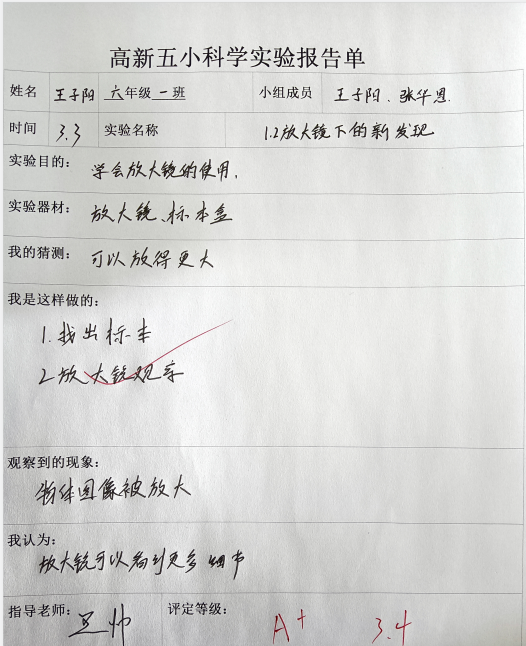 高新五小科学实验报告单
姓名 王子阳 六年级 一 班 小组成员 王子阳、张华恩.
时间 3.3 实验名称 1.2放大镜下的新发现
实验目的: 学会放大镜的使用.
实验器材: 放大镜、标本盒
我的猜测: 可以放得更大
我是这样做的:
1.找出标本
2.放大镜观察
观察到的现象:
物体图像被放大
我认为:
放大镜可以看到更多细节
指导老师: 帅 评定等级: A+ 3.4